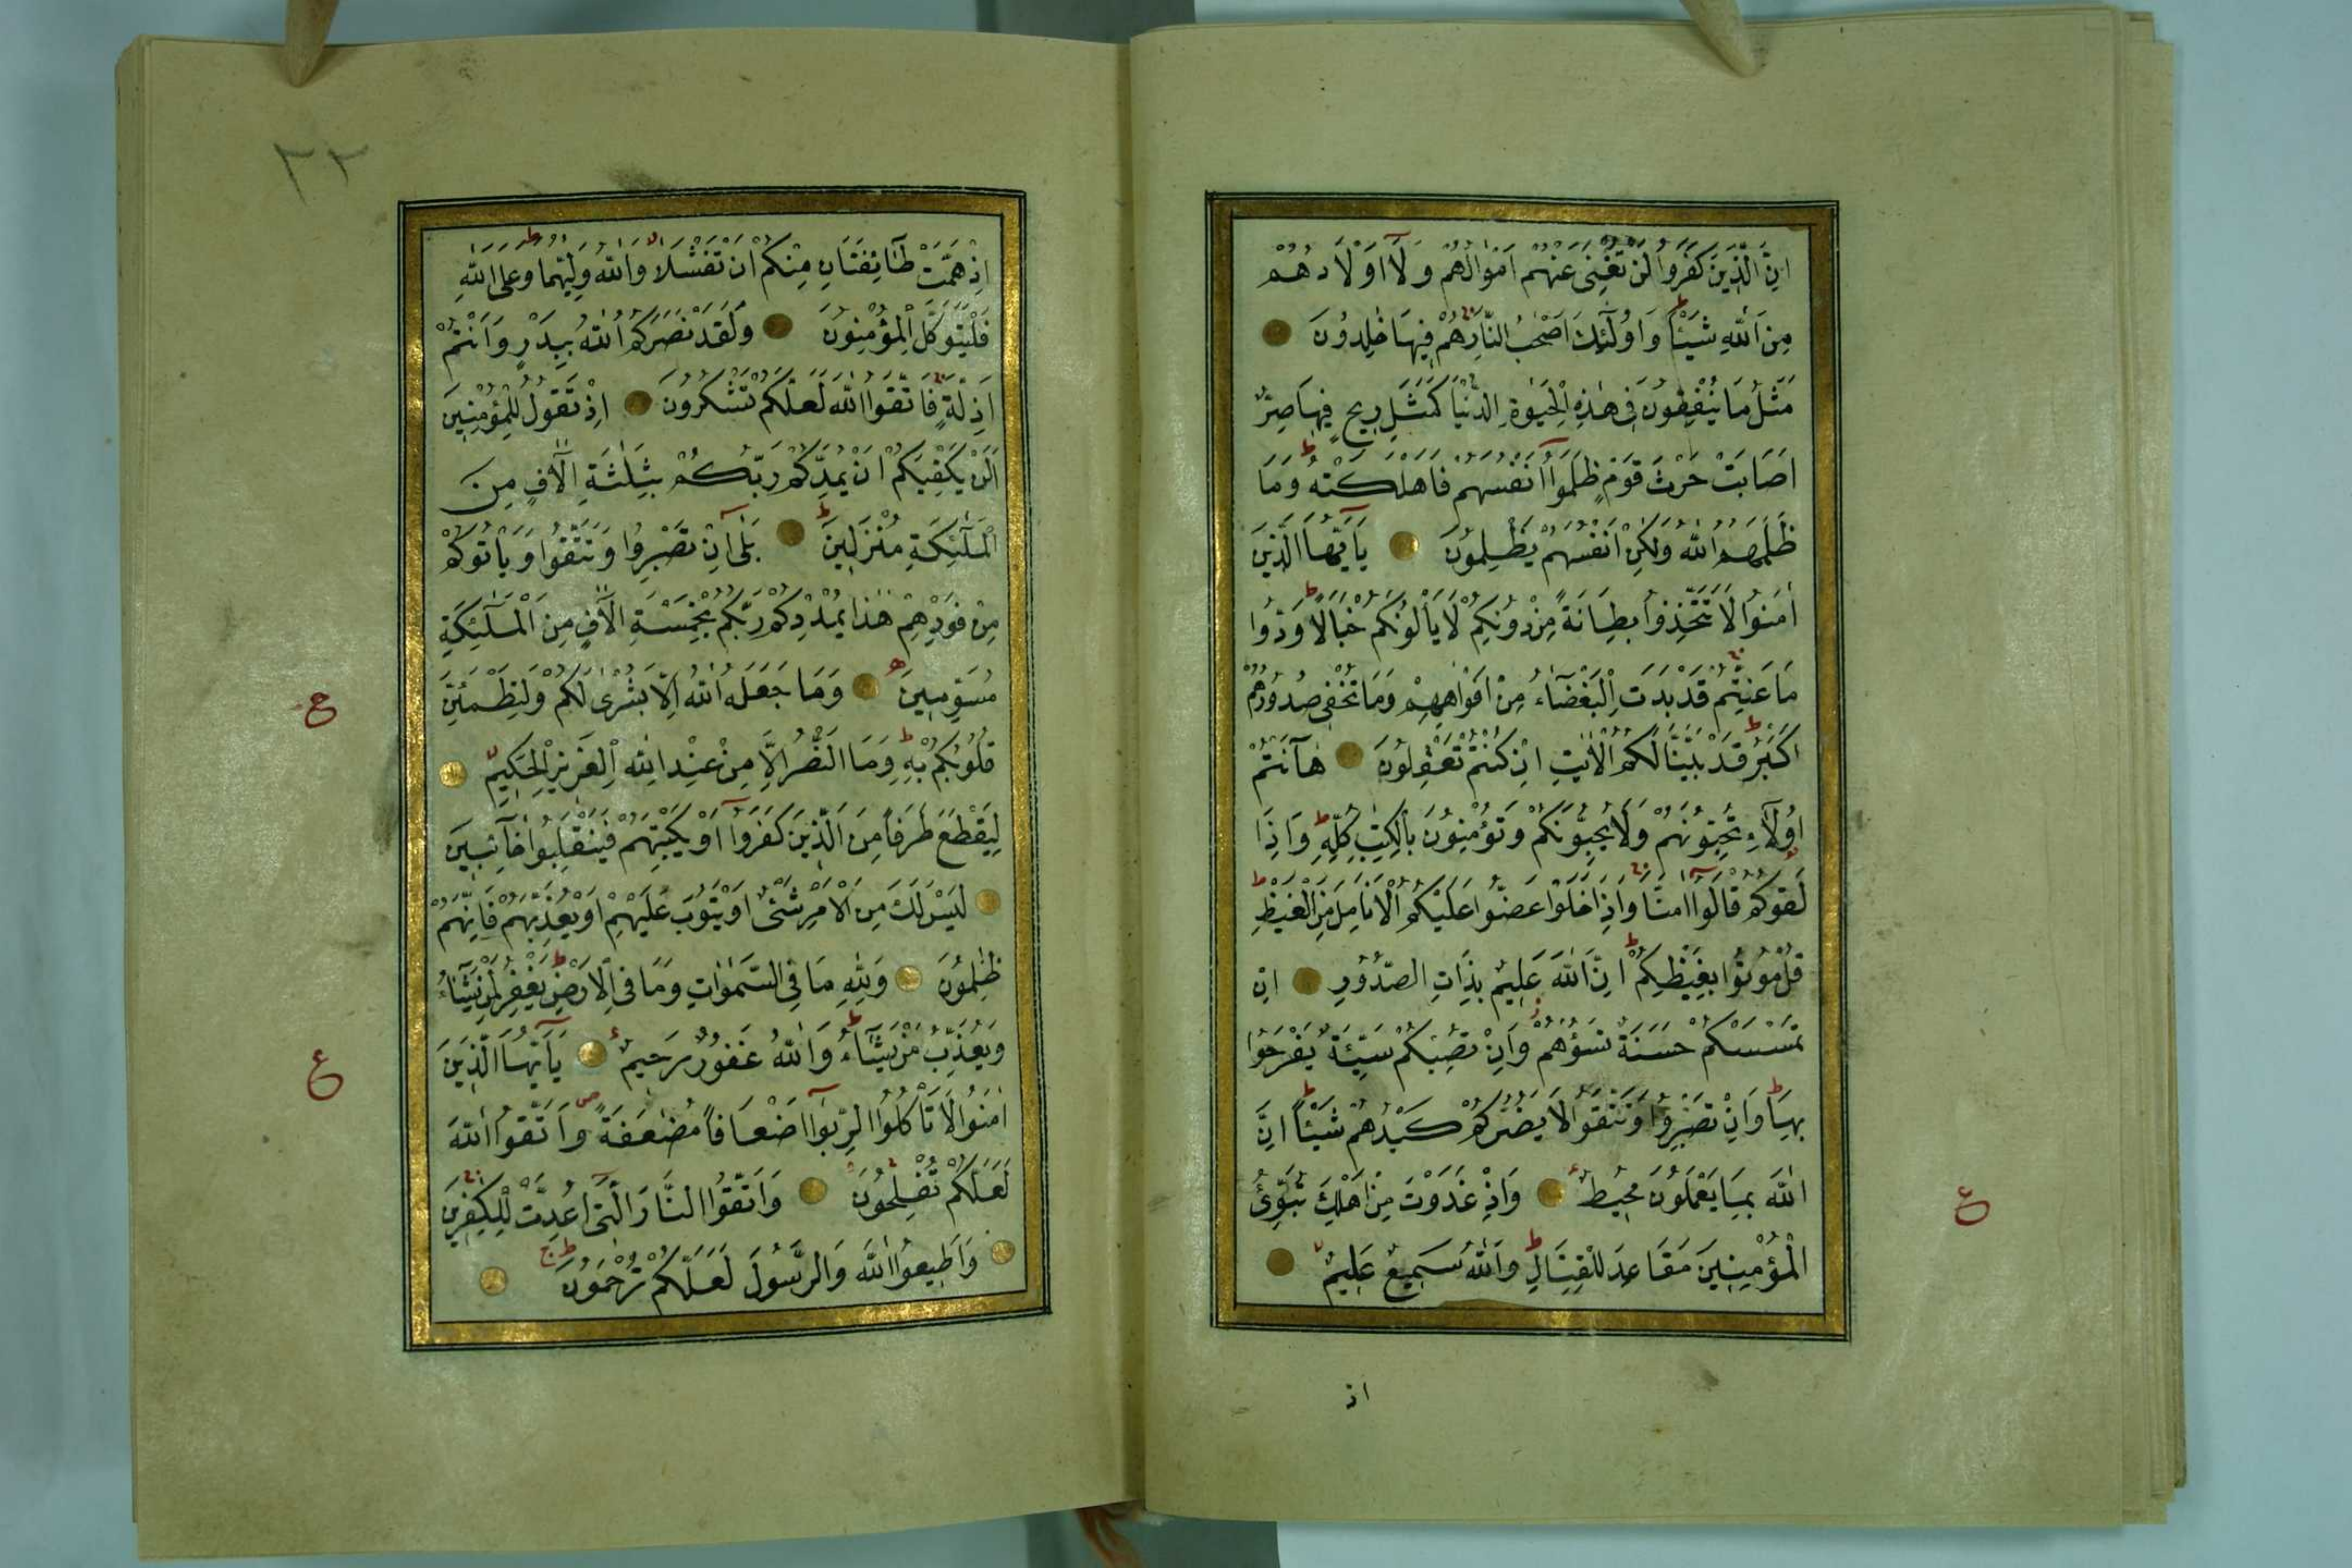 اِنَّ الَّذِينَ كَفَرُوا لَنْ تُغْنِىَ عَنْهُمْ اَمْوَالُهُمْ وَلَآ اَوْلَادُهُمْ
مِنَ اللّٰهِ شَيْـًٔا وَاُولٰٓئِكَ اَصْحٰبُ النَّارِ هُمْ فِيهَا خٰلِدُونَ
مَثَلُ مَا يُنْفِقُونَ فِى هٰذِهِ الْحَيٰوةِ الدُّنْيَا كَمَثَلِ رِيحٍ فِيهَا صِرٌّ
اَصَابَتْ حَرْثَ قَوْمٍ ظَلَمُوٓا اَنْفُسَهُمْ فَاَهْلَكَتْهُ وَمَا
ظَلَمَهُمُ اللّٰهُ وَلٰكِنْ اَنْفُسَهُمْ يَظْلِمُونَ يَآ اَيُّهَا الَّذِينَ
اٰمَنُوا لَا تَتَّخِذُوا بِطَانَةً مِنْ دُونِكُمْ لَا يَأْلُونَكُمْ خَبَالًا وَدُّوا
مَا عَنِتُّمْ قَدْ بَدَتِ الْبَغْضَآءُ مِنْ اَفْوَاهِهِمْ وَمَا تُخْفِى صُدُورُهُمْ
اَكْبَرُ قَدْ بَيَّنَّا لَكُمُ الْاٰيٰتِ اِنْ كُنْتُمْ تَعْقِلُونَ هَآ اَنْتُمْ
اُولَآءِ تُحِبُّونَهُمْ وَلَا يُحِبُّونَكُمْ وَتُؤْمِنُونَ بِالْكِتٰبِ كُلِّهِ وَاِذَا
لَقُوكُمْ قَالُوٓا اٰمَنَّا وَاِذَا خَلَوْا عَضُّوا عَلَيْكُمُ الْاَنَامِلَ مِنَ الْغَيْظِ
قُلْ مُوتُوا بِغَيْظِكُمْ اِنَّ اللّٰهَ عَلِيمٌ بِذَاتِ الصُّدُورِ اِنْ
تَمْسَسْكُمْ حَسَنَةٌ تَسُؤْهُمْ وَاِنْ تُصِبْكُمْ سَيِّئَةٌ يَفْرَحُوا
بِهَا وَاِنْ تَصْبِرُوا وَتَتَّقُوا لَا يَضُرُّكُمْ كَيْدُهُمْ شَيْـًٔا اِنَّ
اللّٰهَ بِمَا يَعْمَلُونَ مُحِيطٌ وَاِذْ غَدَوْتَ مِنْ اَهْلِكَ تُبَوِّئُ
الْمُؤْمِنِينَ مَقَاعِدَ لِلْقِتَالِ وَاللّٰهُ سَمِيعٌ عَلِيمٌ
ع
اذ
٢٢
اِذْ هَمَّتْ طَآئِفَتَانِ مِنْكُمْ اَنْ تَفْشَلَا وَاللّٰهُ وَلِيُّهُمَا وَعَلَى اللّٰهِ
فَلْيَتَوَكَّلِ الْمُؤْمِنُونَ وَلَقَدْ نَصَرَكُمُ اللّٰهُ بِبَدْرٍ وَاَنْتُمْ
اَذِلَّةٌ فَاتَّقُوا اللّٰهَ لَعَلَّكُمْ تَشْكُرُونَ اِذْ تَقُولُ لِلْمُؤْمِنِينَ
اَلَنْ يَكْفِيَكُمْ اَنْ يُمِدَّكُمْ رَبُّكُمْ بِثَلٰثَةِ اٰلَافٍ مِنَ
الْمَلٰٓئِكَةِ مُنْزَلِينَ بَلٰٓى اِنْ تَصْبِرُوا وَتَتَّقُوا وَيَأْتُوكُمْ
مِنْ فَوْرِهِمْ هٰذَا يُمْدِدْكُمْ رَبُّكُمْ بِخَمْسَةِ اٰلَافٍ مِنَ الْمَلٰٓئِكَةِ
مُسَوِّمِينَ وَمَا جَعَلَهُ اللّٰهُ اِلَّا بُشْرٰى لَكُمْ وَلِتَطْمَئِنَّ
قُلُوبُكُمْ بِهِ وَمَا النَّصْرُ اِلَّا مِنْ عِنْدِ اللّٰهِ الْعَزِيزِ الْحَكِيمِ
لِيَقْطَعَ طَرَفًا مِنَ الَّذِينَ كَفَرُوٓا اَوْ يَكْبِتَهُمْ فَيَنْقَلِبُوا خَآئِبِينَ
لَيْسَ لَكَ مِنَ الْاَمْرِ شَىْءٌ اَوْ يَتُوبَ عَلَيْهِمْ اَوْ يُعَذِّبَهُمْ فَاِنَّهُمْ
ظٰلِمُونَ وَلِلّٰهِ مَا فِى السَّمٰوَاتِ وَمَا فِى الْاَرْضِ يَغْفِرُ لِمَنْ يَشَآءُ
وَيُعَذِّبُ مَنْ يَشَآءُ وَاللّٰهُ غَفُورٌ رَحِيمٌ يَآ اَيُّهَا الَّذِينَ
اٰمَنُوا لَا تَأْكُلُوا الرِّبٰوٓا اَضْعَافًا مُضٰعَفَةً وَاتَّقُوا اللّٰهَ
لَعَلَّكُمْ تُفْلِحُونَ وَاتَّقُوا النَّارَ الَّتِىٓ اُعِدَّتْ لِلْكٰفِرِينَ
وَاَطِيعُوا اللّٰهَ وَالرَّسُولَ لَعَلَّكُمْ تُرْحَمُونَ
ع